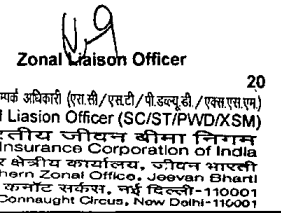 Zonal Liaison Officer
20
म्पर्क अधिकारी (एस.सी/एसटी/पी.डब्ल्यू.डी./एक्स.एस.एम.)
l Liasion Officer (SC/ST/PWD/XSM)
तीय जीवन बीमा निगम
nsurance Corporation of India
र क्षेत्रीय कार्यालय, जीवन भारती
hern Zonal Office, Jeevan Bharti
कनॉट सर्कस, नई दिल्ली-110001
Connaught Circus, New Delhi-110001